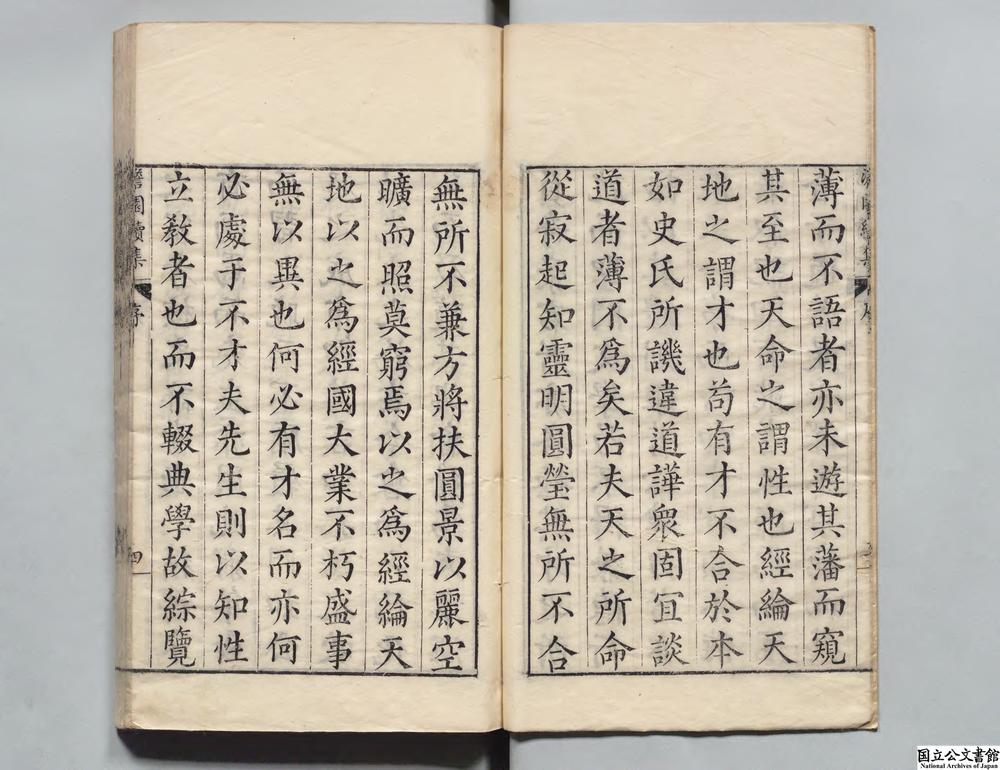 薄而不語者亦未遊其藩而窺
其至也天命之謂性也經綸天
地之謂才也苟有才不合於本
如史氏所譏違道譁衆固冝談
道者薄不為矣若夫天之所命
從寂起知靈明圓瑩無所不合
無所不兼方將扶圓景以麗空
曠而照莫窮焉以之為經綸天
地以之為經國大業不朽盛事
無以異也何必有才名而亦何
必處于不才夫先生則以知性
立教者也而不輟典學故綜覽
澹園續集
序
四
国立公文書館
National Archives of Japan